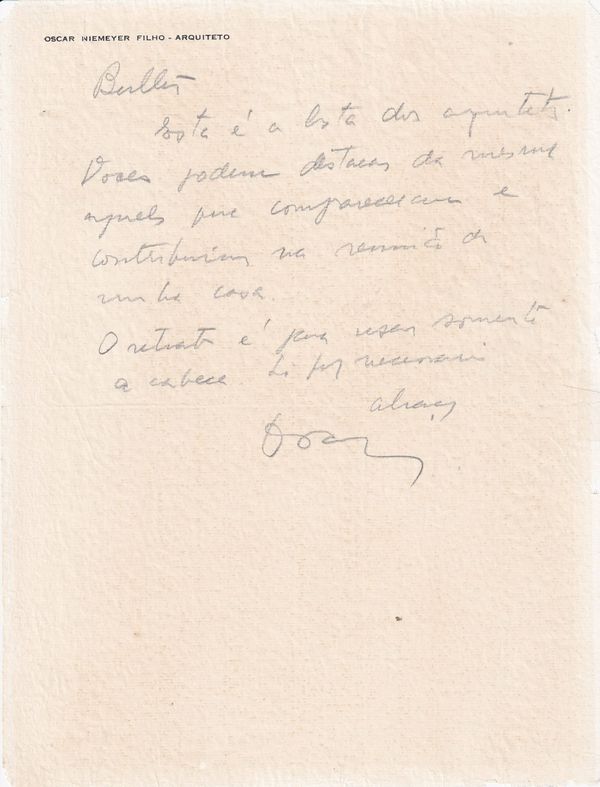 OSCAR NIEMEYER FILHO - ARQUITETO
Esta é a lista dos arquitetos.
Voces podem destacar da mesma
aqueles que compareceram e
contribuiram na reunião de
minha casa.
O retrato é para usar somente
a cabeça. Si for necessario
abraços
Oscar